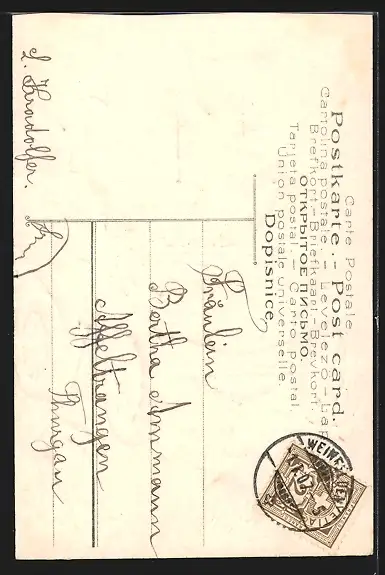 Carte Postale
Postkarte. - Post card.
Cartolina postale. - Levelező-Lap
Brefkort.-Briefkaart.-Brevkort.
ОТКРЫТОЕ ПИСЬМО.
Tarjeta postal. - Carto postal.
Union postale universelle.
Dopisnice
Fräulein
Bertha Ammann
Affeltrangen
Thurgau
L. Kradolfer.